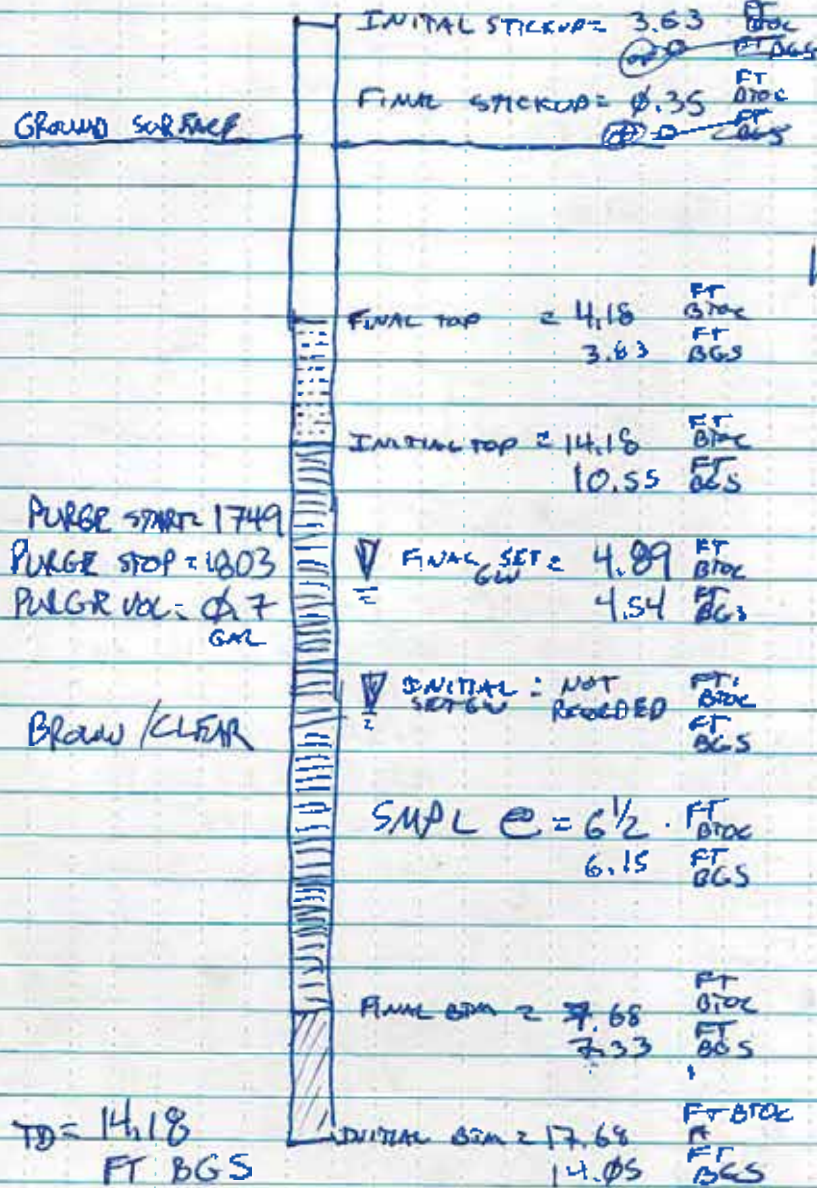 INITAL STICKUP = 3.63 FT BTOC
FT BGS
FINAL STICKUP = 0.35 FT BTOC
FT BGS
GROUND SURFACE
FINAL TOP = 4.18 FT BTOC
3.83 FT BGS
INITIAL TOP = 14.18 FT BTOC
10.55 FT BGS
PURGE START = 1749
PURGE STOP = 1803
PURGE VOL = 0.7
GAL
FINAL SET GW = 4.89 FT BTOC
4.54 FT BGS
INITIAL SET GW = NOT RECORDED FT BTOC
FT BGS
BROWN / CLEAR
SMPL @ = 6 1/2 FT BTOC
6.15 FT BGS
FINAL BTM = 7.68 FT BTOC
7.33 FT BGS
TD = 14.18
FT BGS
INITIAL BTM = 17.68 FT BTOC
14.05 FT BGS